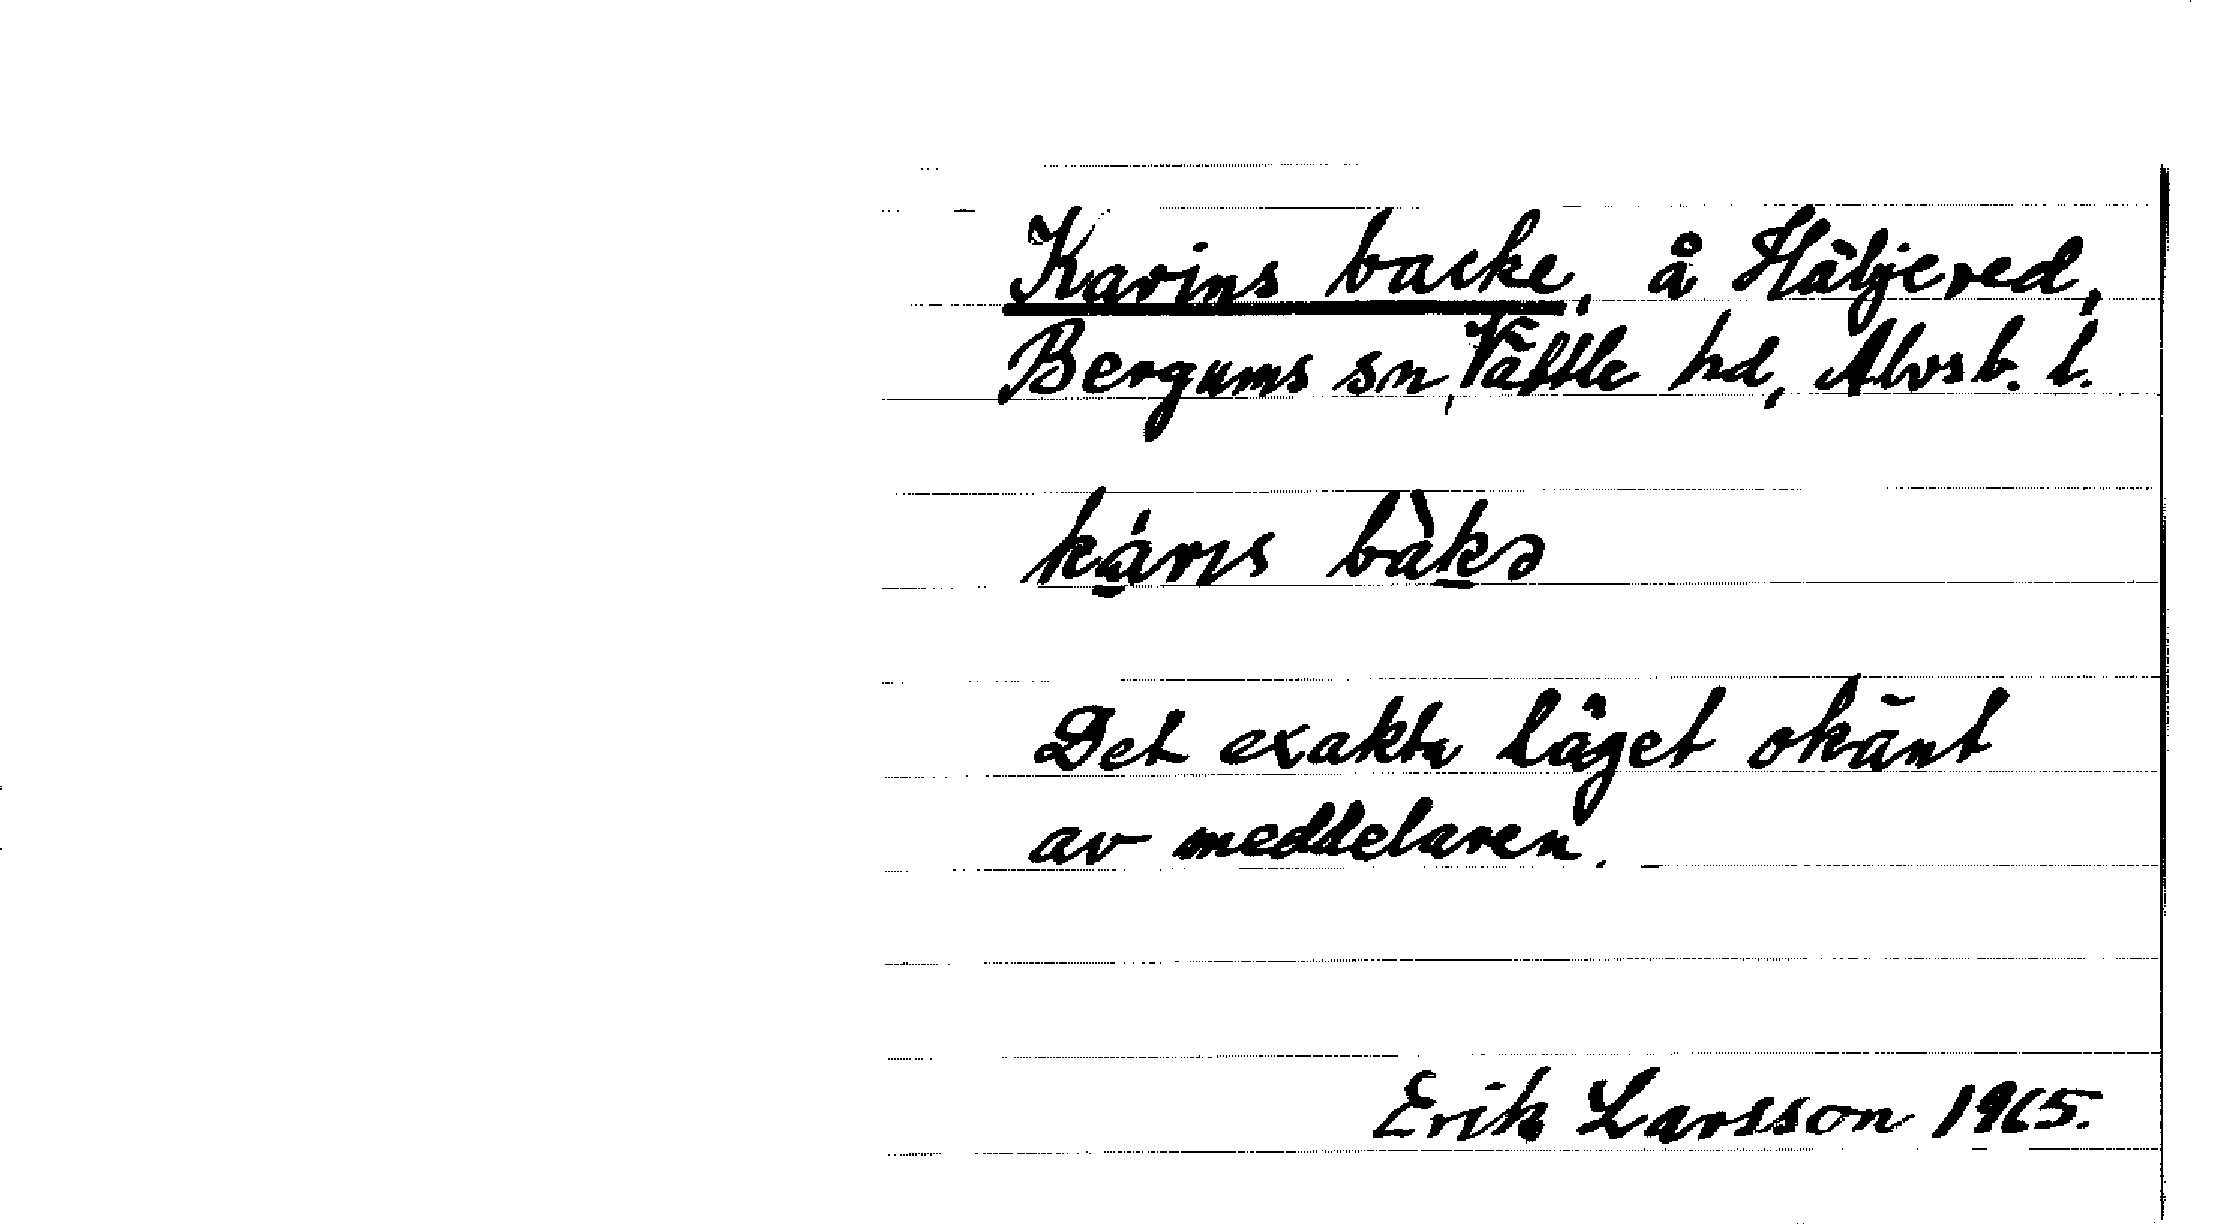 Karins backe, å Häljered,
Bergums sn, Vättle hd, Älvsb. l.
bàkə
Det exakta läget okänt
av meddelaren.
Erik Larsson 1965.